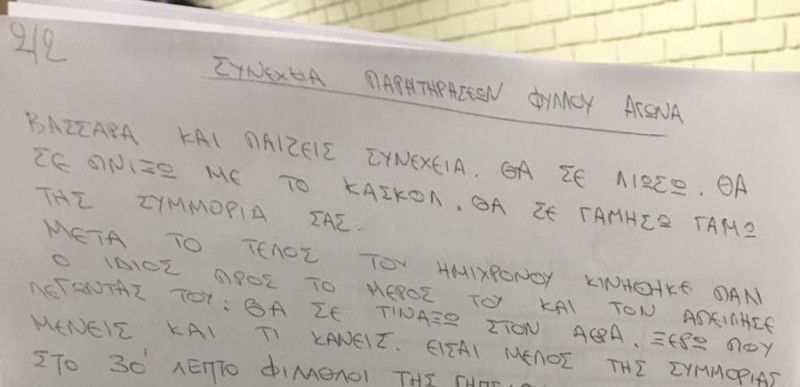 2/2
ΣΥΝΕΧΕΙΑ ΠΑΡΑΤΗΡΗΣΕΩΝ ΦΥΛΛΟΥ ΑΓΩΝΑ
ΒΑΣΣΑΡΑ ΚΑΙ ΠΑΙΖΕΙΣ ΣΥΝΕΧΕΙΑ. ΘΑ ΣΕ ΛΙΩΣΩ. ΘΑ
ΣΕ ΠΝΙΞΩ ΜΕ ΤΟ ΚΑΣΚΟΛ. ΘΑ ΣΕ ΓΑΜΗΣΩ ΓΑΜΩ
ΤΗΣ ΣΥΜΜΟΡΙΑ ΣΑΣ.
ΜΕΤΑ ΤΟ ΤΕΛΟΣ ΤΟΥ ΗΜΙΧΡΟΝΟΥ ΚΙΝΗΘΗΚΕ ΠΑΛΙ
Ο ΙΔΙΟΣ ΠΡΟΣ ΤΟ ΜΕΡΟΣ ΤΟΥ ΚΑΙ ΤΟΝ ΑΠΕΙΛΗΣΕ
ΛΕΓΩΝΤΑΣ ΤΟΥ: ΘΑ ΣΕ ΤΙΝΑΞΩ ΣΤΟΝ ΑΕΡΑ. ΞΕΡΩ ΠΟΥ
ΜΕΝΕΙΣ ΚΑΙ ΤΙ ΚΑΝΕΙΣ. ΕΙΣΑΙ ΜΕΛΟΣ ΤΗΣ ΣΥΜΜΟΡΙΑΣ
ΣΤΟ 30' ΛΕΠΤΟ ΦΙΛΑΘΛΟΙ ΤΗΣ